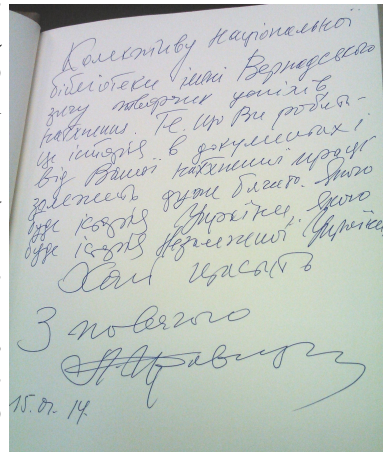 Колективу Національної
бібліотеки імені Вернадського
зичу творчих успіхів,
натхнення. Те, що Ви робите -
це історія в документах і
від Вашої натхненної праці
залежить дуже багато. Якою
буде історія України, якою
буде історія Незалежної України
Хай щастить
З повагою
15.01.14.